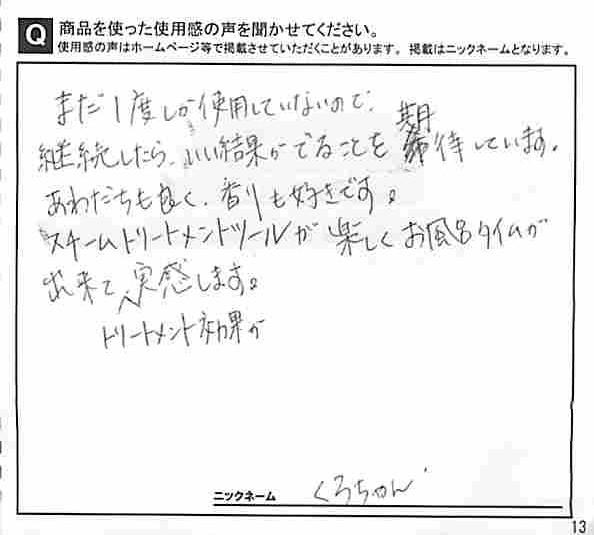 Q 商品を使った使用感の声を聞かせてください。
使用感の声はホームページ等で掲載させていただくことがあります。 掲載はニックネームとなります。
まだ1度しか使用していないので、
継続したら、いい結果がでることを期待しています。
あわだちも良く、香りも好きです。
スチームトリートメントツールが楽しくお風呂タイムが
出来て、実感します。
トリートメント効果が
ニックネーム くろちゃん
13